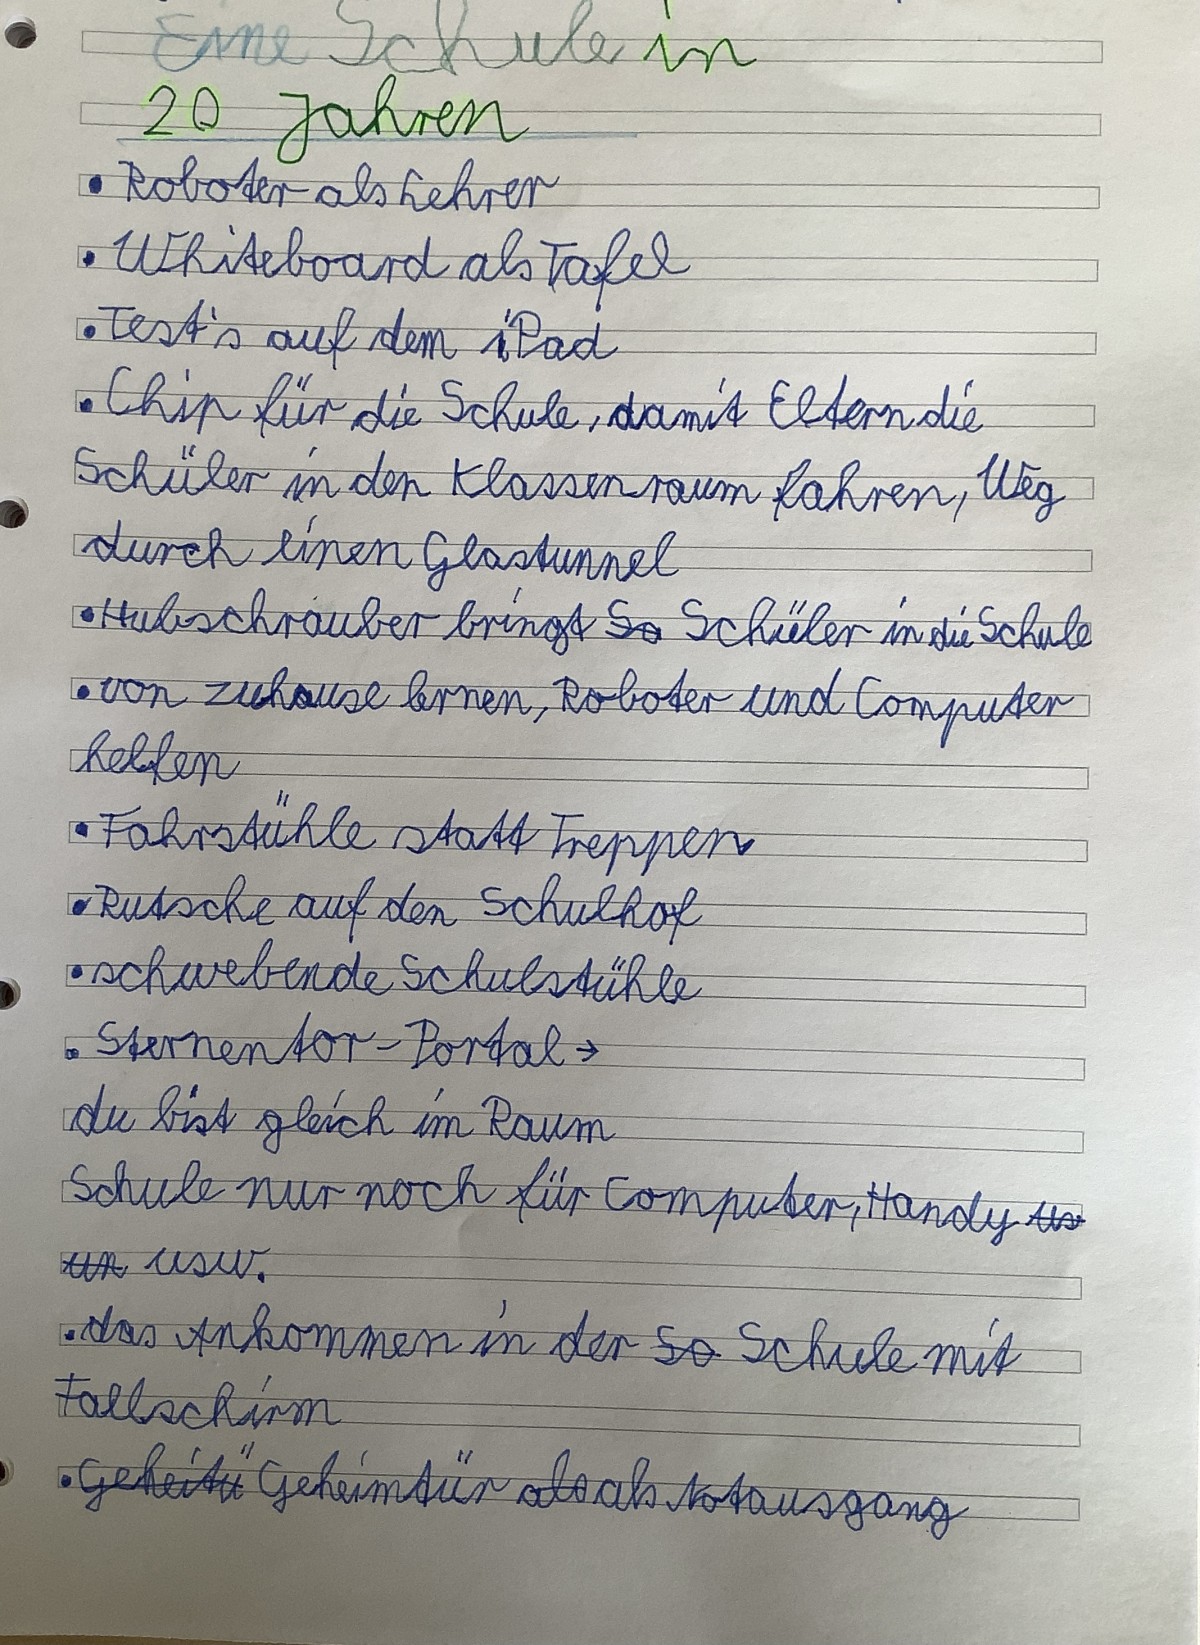 Eine Schule in
20 Jahren
• Roboter als Lehrer
• Whiteboard als Tafel
• Test's auf dem iPad
• Chip für die Schule, damit Eltern die
Schüler in den Klassenraum fahren, Weg
durch einen Glastunnel
• Hubschrauber bringt So Schüler in die Schule
• von zuhause lernen, Roboter und Computer
helfen
• Fahrstühle statt Treppen
• Rutsche auf den Schulhof
• schwebende Schulstühle
• Sternentor-Portal →
du bist gleich im Raum
Schule nur noch für Computer, Handy us
un usw.
• das Ankommen in der So Schule mit
Fallschirm
• Geheitü Geheimtür als als Notausgang